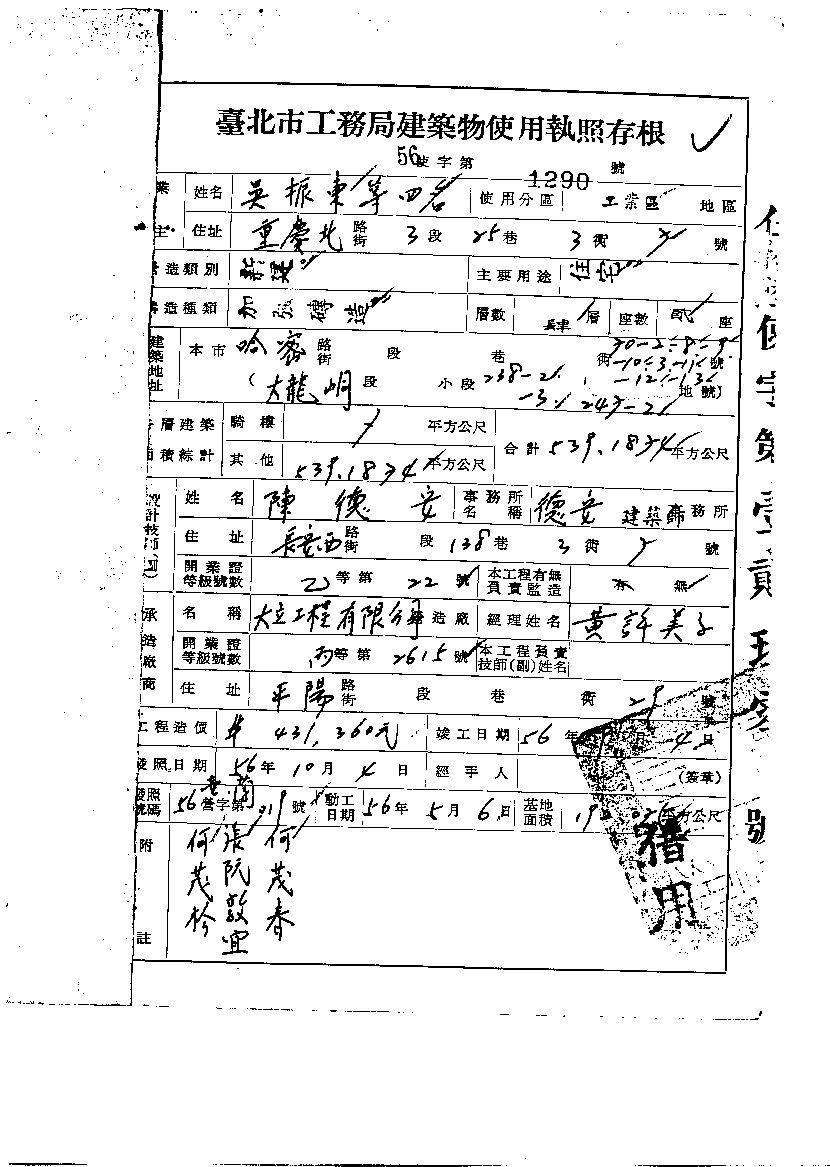 臺北市工務局建築物使用執照存根
56使字第1290號
業 姓名 吳振東等四名 使用分區 工業區 地區
主 住址 重慶北路街 3段 25巷 3衖 號
造類別 新建 主要用途 住宅
造種類 加強磚造 層數 層 座數 座
建築地址 本市 哈密路街 段 巷 衖 號
(大龍峒段 小段 238-2 地號)
層建築 騎樓 平方公尺 合計 539.18 平方公尺
積綜計 其他 539.18 平方公尺
設計技師(副) 姓名 陳德安 事務所名稱 德安建築師事務所
住址 長安西路街 段 138巷 3衖 號
開業證等級號數 乙等第22號 本工程有無負責監造 有 無
承造廠商 名稱 大立工程有限公司 營造廠 經理姓名 黃許美子
開業證等級號數 丙等第2615號 本工程負責技師(副)姓名
住址 平陽路街 段 巷 衖 29 號
工程造價 431,360元 竣工日期 56年 月 日
發照日期 56年10月4日 經手人 (簽章)
發照號碼 56營字第 019號 動工日期 56年5月6日 基地面積 平方公尺
附註
何茂春
張阮敬宜
何茂松
使字第壹貳玖零號
借用